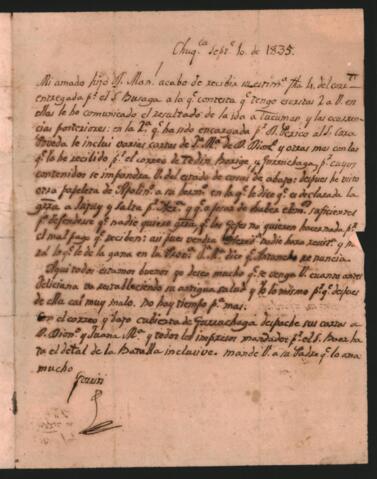 Chuq.ca Sept.e 10. de 1835.
Mi amado hijo D. Man.l acabo de recibir su estim.a fha 4. del corr.te
entregada p.r el S. Buzaga a la q.e contexta q.e tengo escritas 2 a V. en
ellas le he comunicado el resultado de la ida a Tucuman y las ocurren
cias posteriores: en la 2.a q.e ha sido encargada p.r D. Perico al S. Caza
Proveda le inclui varias cartas de S. M.a de D. Dion.o y otras mas con las
q.e lo he recibido p.r el correo de Tedin, Borige, y Gurruchaga p.r cuyos
contenidos se impondra V. del estado de cosas de abajo: despues he visto
otra papeleta de Apolin.o a su herm.o en la q.e le dice q.e es declarada la
grra a Jujuy y Salta p.r y q.e apesar de haber elem.s suficientes
p.a defenderse q.e nadie quiere grra q.e los Gefes no quieren hacer nada p.r
el mal pago q.e reciben: asi pues vendra nadie hara resist.a y ha
ra lo q.e le de la gana en las Prov.s D. M. dice q.e Antuncho renuncia
Aqui todos estamos buenos yo deseo mucho q.e se venga V. cuanto antes
Feliciana va restableciendo su antigua salud y lo mismo p.r q.e despues
de ella cai muy malo. no hay tiempo p.a mas.
Por el correo y bajo cubierta de Gurruchaga despache sus cartas a
D. Dion.o y Juana M.a y todos los impresos mandados p.r el S. Baaz has
ta el detal de la Batalla inclusive. mande V. a su Padre q.e lo ama
mucho